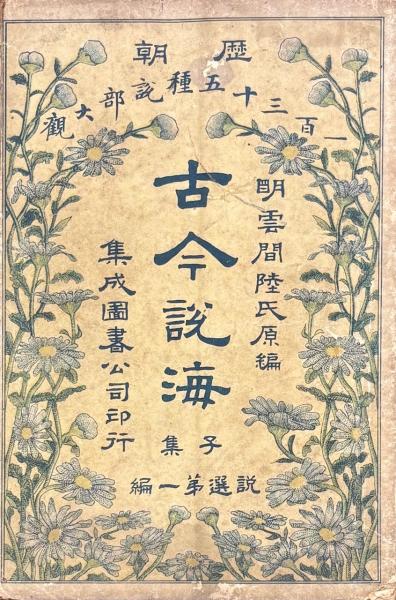 歷朝
一百三十五種說部大觀
明雲間陸氏原編
古今說海
子集
說選第一編
集成圖書公司印行